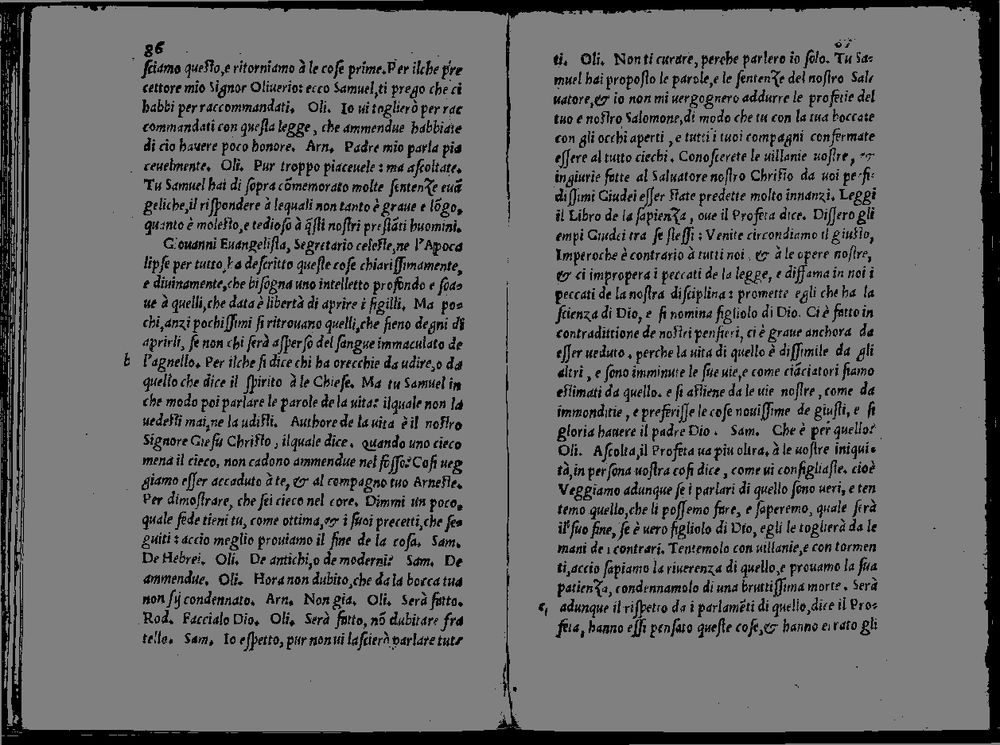 86
sciamo questo, e ritorniamo à le cose prime. Per ilche pre
cettore mio Signor Oliuerio: ecco Samuel, ti prego che ci
habbi per raccommandati. Oli. Io ui toglierò per rac
commandati con questa legge, che ammendue habbiate
di cio hauere poco honore. Arn. Padre mio parla pia
ceuelmente. Oli. Pur troppo piaceuele: ma ascoltate.
Tu Samuel hai di sopra cõmemorato molte sentenze euã
geliche, il rispondere à lequali non tanto è graue e lõgo,
quanto è molesto, e tedioso à q̃sti nostri prestãti huomini.
Giouanni Euangelista, Segretario celeste, ne l'Apoca
lipse per tutto, ha descritto queste cose chiarissimamente,
e diuinamente, che bisogna uno intelletto profondo e soa-
ue à quelli, che data è libertà di aprire i sigilli. Ma po-
chi, anzi pochissimi si ritrouano quelli, che sieno degni di
aprirli, se non chi serà asperso del sangue immaculato de
b l'agnello. Per ilche si dice chi ha orecchie da udire, o da
quello che dice il spirito à le Chiese. Ma tu Samuel in
che modo poi parlare le parole de la uita: ilquale non la
uedesti mai, ne la udisti. Authore de la uita è il nostro
Signore Giesu Christo, ilquale dice. quando uno cieco
mena il cieco, non cadono ammendue nel fosso? Cosi ueg
giamo esser accaduto à te, & al compagno tuo Arneste.
Per dimostrare, che sei cieco nel core. Dimmi un poco,
quale fede tieni tu, come ottima, & i suoi precetti, che se-
guiti: accio meglio prouiamo il fine de la cosa. Sam.
De Hebrei. Oli. De antichi, o de moderni? Sam. De
ammendue. Oli. Hora non dubito, che da la bocca tua
non sij condennato. Arn. Non gia. Oli. Serà fatto.
Rod. Faccialo Dio. Oli. Serà fatto, nõ dubitare fra
tello. Sam. Io espetto, pur non ui lascierò parlare tutt
ti. Oli. Non ti curare, perche parlero io solo. Tu Sa-
muel hai proposto le parole, e le sentenze del nostro Sal-
uatore, & io non mi uergognero addurre le profetie del
tuo e nostro Salomone, di modo che tu con la tua boccate
con gli occhi aperti, e tutti i tuoi compagni confermate
essere al tutto ciechi. Conoscerete le uillanie uostre, &
ingiurie fatte al Saluatore nostro Christo da uoi perfi-
dissimi Giudei esser state predette molto innanzi. Leggi
il Libro de la sapienza, oue il Profeta dice. Dissero gli
empi Giudei tra se stessi: Venite circondiamo il giusto,
Imperoche è contrario à tutti noi, & à le opere nostre,
& ci impropera i peccati de la legge, e diffama in noi i
peccati de la nostra disciplina: promette egli che ha la
scienza di Dio, e si nomina figliolo di Dio. Ci è fatto in
contradittione de nostri pensieri, ci è graue anchora da
esser ueduto. perche la uita di quello è dissimile da gli
altri, e sono imminute le sue uie, e come ciãciatori siamo
estimati da quello. e si astiene da le uie nostre, come da
immonditie, e preferisse le cose nouissime de giusti, e si
gloria hauere il padre Dio. Sam. Che è per quello?
Oli. Ascolta, il Profeta ua piu oltra. à le uostre iniqui-
tà, in persona uostra cosi dice, come ui consigliaste. cioè
Veggiamo adunque se i parlari di quello sono ueri, e ten
temo quello, che li possemo fare, e saperemo, quale serà
il suo fine, se è uero figliolo di Dio, egli le toglierà da le
mani de i contrari. Tentemolo con uillanie, e con tormen
ti, accio sapiamo la riuerenza di quello, e prouamo la sua
patienza, condennamolo di una bruttissima morte. Serà
c, adunque il rispetto da i parlamẽti di quello, dice il Pro-
feta, hanno essi pensato queste cose, & hanno errato gli